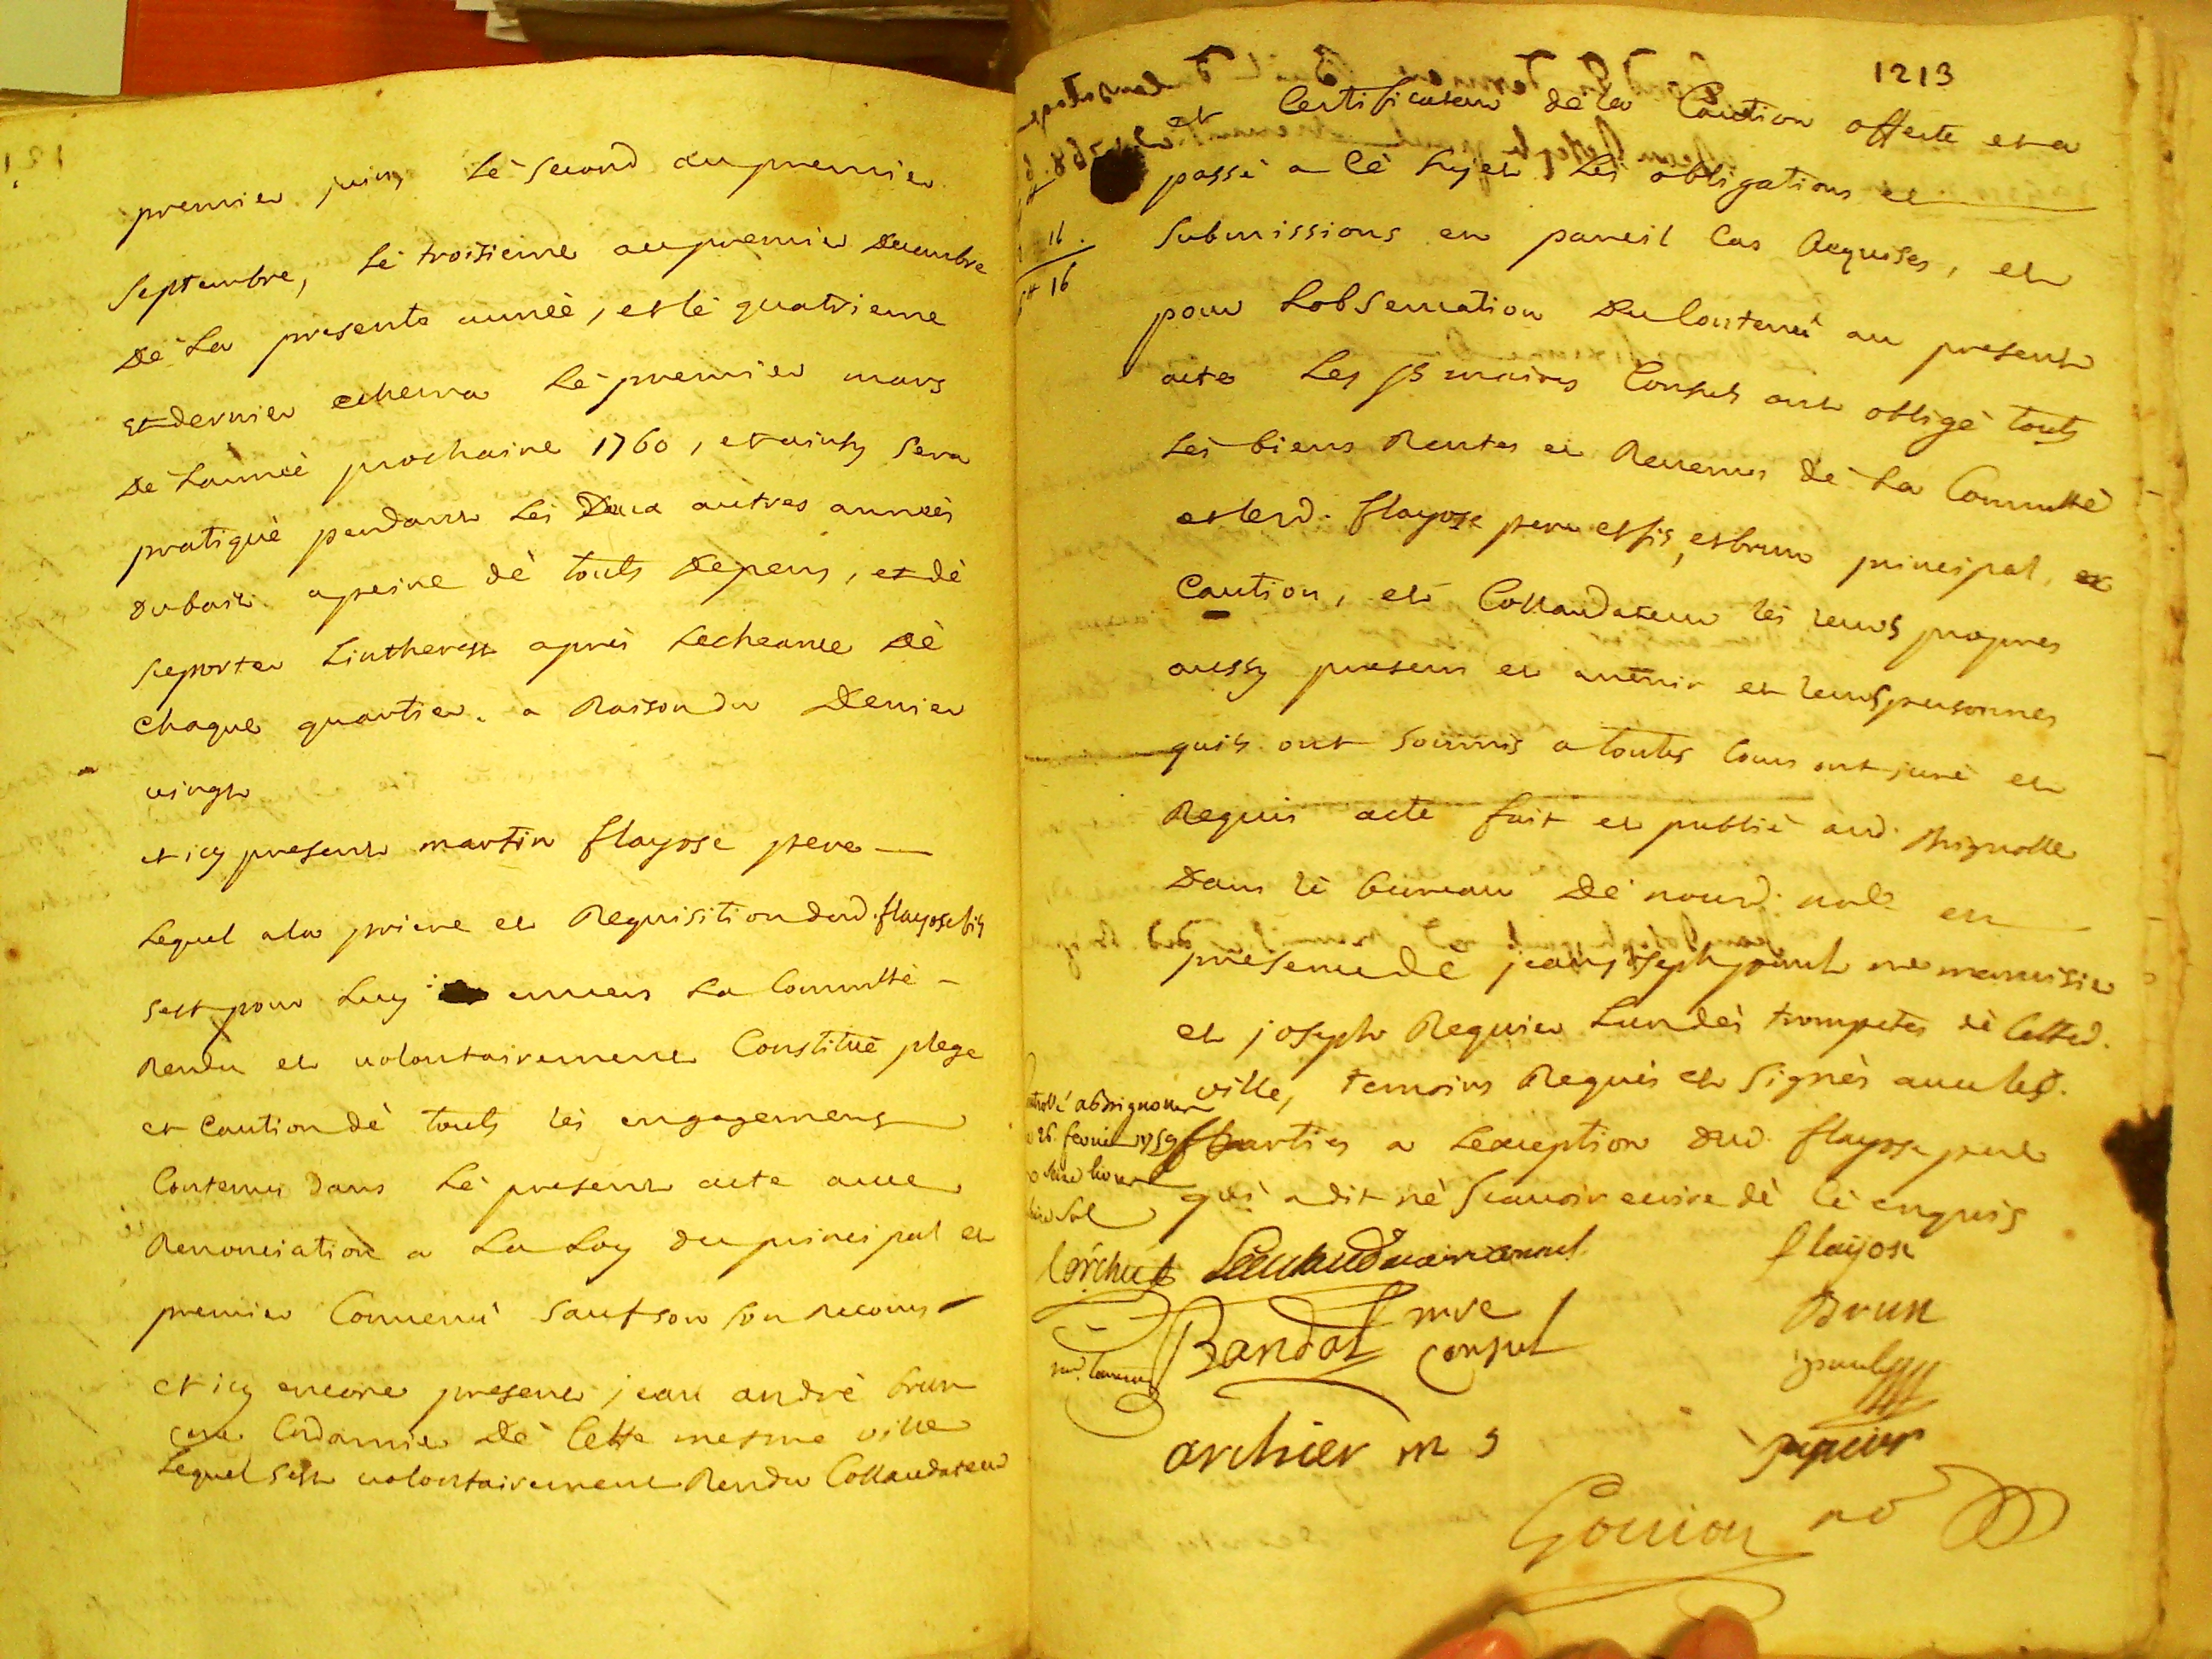 premier juin, Lè Second au premier
Septembre, Lè troisieme au premier Decembre
Dè La presente année, et lè quatrieme
et dernier echerra Lè premier mars
Dè Lannéé prochaine 1760, et ainsy sera
pratiqué pendant Lès Deux autres années
Du bail a peine dè touts Depens, et dè
suporter Lintherest après Lecheance Dè
chaque quartier a Raison du Denier
vingt
et icy present martin flayosc pere
Lequel a la priere et Requisition dud. flayosc fis
sest pour Luy envers La Commtté
Rendu et volontairement Constitué plege
et Caution dè touts lès engagements
Contenus dans Lè present acte avec
Renonciation a La Loy du principal et
premier Convenu sauf son bon recours
et icy encore present jean andré brun
me Cordonnier Dè Cette mesme ville
Lequel sest volontairement Rendu Collaudateur
1213
et Certificateur dè la Caution offerte et a
passé a cè sujet Lès obligations et
Submissions en pareil Cas Requises, et
pour Lobservation Du Contenu au present
acte Les srs maires Consuls ont obligé touts
Lès biens Rentes et Revenus dè La Commtté
et lesd. flayosc pere et fis, et brun principal,
Caution, et Collaudateur lès leurs propres
aussy presens et avenir et leurs personnes
quils ont soumis a toutes Cours ont juré et
Requis acte fait et publié aud. Brignolle
Dans lè bureau Dè nousd. nore en
presence dè jean joseph paul me menuisier
et joseph Requier Lun dès trompetes dè Cetted.
ville, temoins Requis et Signès avec les
parties a Lexception dud. flayosc pere
qui a dit nè scavoir ecrire dè cè enquis
16
16
a brignolle
26. fevrier 1759
sol
flayosc
Brun
Bandol mre
Consul
paul
archier m s
Gouion no